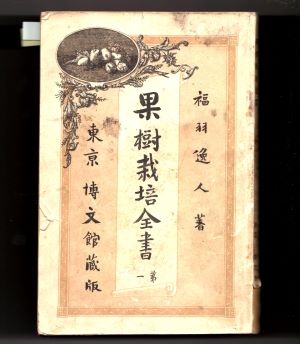 福羽逸人著
果樹栽培全書
第一
東京 博文館蔵版